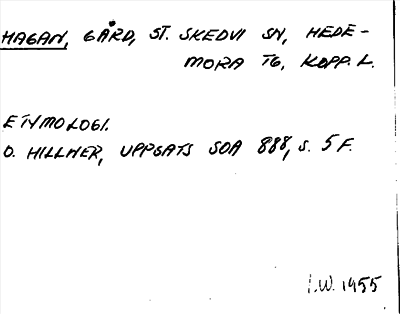 HAGAN, GÅRD, ST. SKEDVI SN, HEDE-
MORA TG, KOPP. L.
ETYMOLOGI.
O. HILLNER, UPPSATS SOA 888, S. 5 F.
I.W. 1955